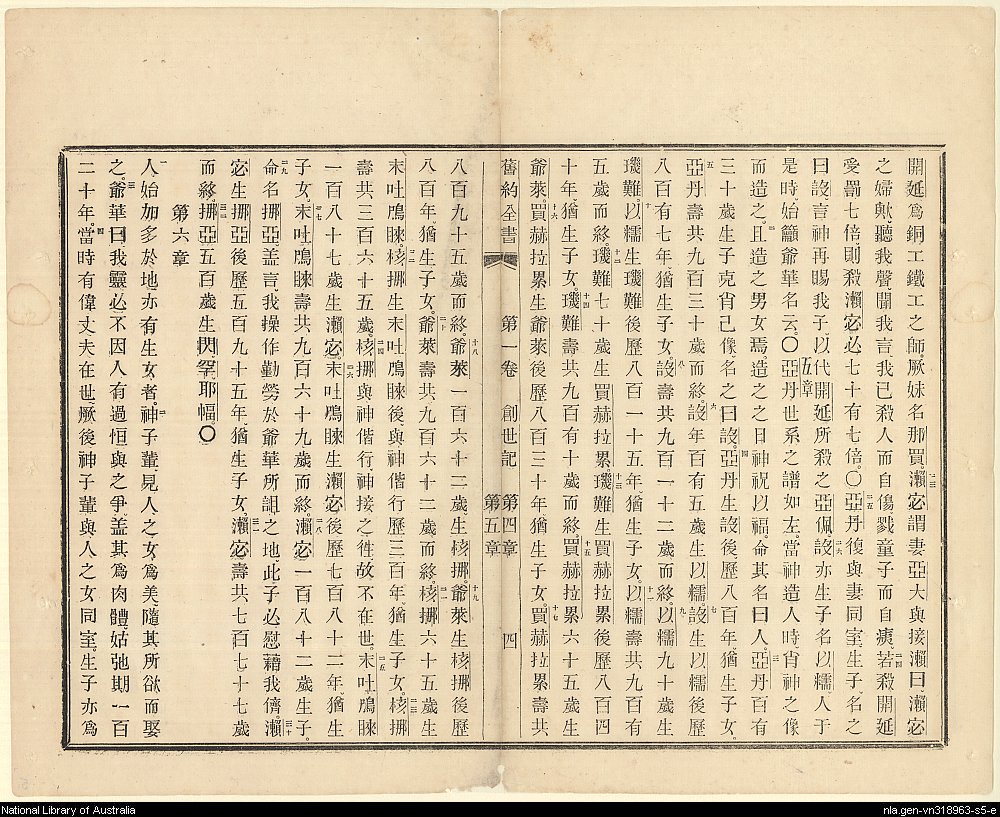 開延爲銅工鐵工之師。厥妹名那買。瀨宓謂妻亞大與接瀨曰、瀨宓
之婦歟、聽我聲、聞我言、我已殺人而自傷、戮童子而自痍、若殺開延
受罰七倍、則殺瀨宓必七十有七倍。〇亞丹復與妻同室、生子、名之
曰設、言神再賜我子、以代開延所殺之亞佩、設亦生子名以糯、人于
是時、始籲爺華名云。〇五章亞丹世系之譜如左。當神造人時、肖神之像
而造之。且造之男女焉、造之之日、神祝以福、命其名曰人。亞丹百有
三十歲生子克肖己像、名之曰設。亞丹生設後、歷八百年、猶生子女。
亞丹壽共九百三十歲而終。設年百有五歲生以糯、設生以糯後歷
八百有七年、猶生子女。設壽共九百一十二歲而終。以糯九十歲生
璣難。以糯生璣難後、歷八百一十五年、猶生子女。以糯壽共九百有
五歲而終。璣難七十歲生買赫拉累。璣難生買赫拉累後、歷八百四
十年、猶生子女。璣難壽共九百有十歲而終。買赫拉累六十五歲生
爺萊。買赫拉累生爺萊後、歷八百三十年、猶生子女。買赫拉累壽共
舊約全書 第一卷 創世記 第四章 第五章 四
八百九十五歲而終。爺萊一百六十二歲生核挪。爺萊生核挪後、歷
八百年、猶生子女。爺萊壽共九百六十二歲而終。核挪六十五歲生
末吐鴈睞。核挪生末吐鴈睞後、與神偕行、歷三百年、猶生子女。核挪
壽共三百六十五歲。核挪與神偕行、神接之徃、故不在世。末吐鴈睞
一百八十七歲生瀨宓。末吐鴈睞生瀨宓後、歷七百八十二年、猶生
子女。末吐鴈睞壽共九百六十九歲而終。瀨宓一百八十二歲生子。
命名挪亞、蓋言我操作勤勞、於爺華所詛之地、此子必慰藉我儕。瀨
宓生挪亞後、歷五百九十五年、猶生子女。瀨宓壽共七百七十七歲
而終。挪亞五百歲生閃、罕、耶幅。〇
第六章
人始加多於地、亦有生女者。神子輩、見人之女爲美、隨其所欲而娶
之。爺華曰、我靈必不因人有過恒與之爭、蓋其爲肉體、姑弛期一百
二十年。當時有偉丈夫在世、厥後神子輩與人之女同室、生子亦爲
National Library of Australia
nla.gen-vn318963-s5-e